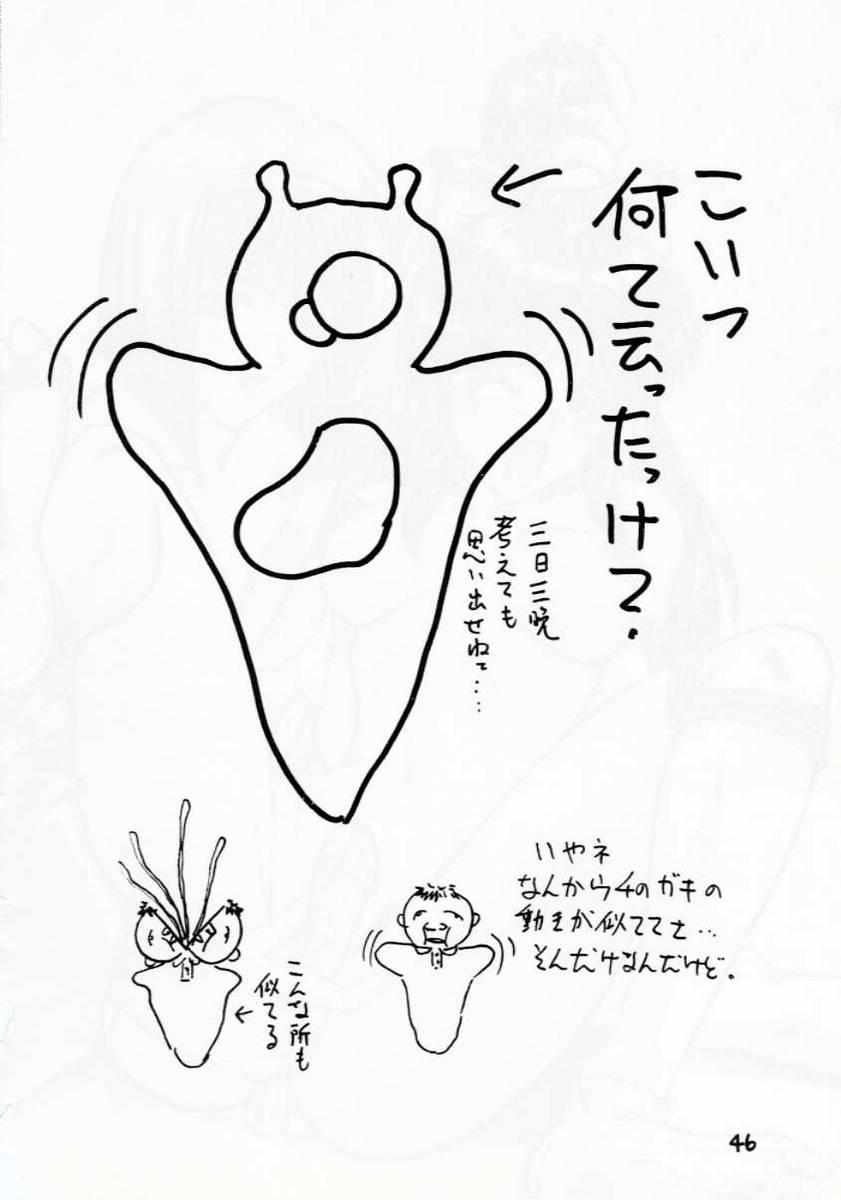 こいつ
何て云ったっけ?
三日三晩
考えても
思い出せねぇ・・・・
いやネ
なんかウチのガキの
動きが似ててさ・・・
そんだけなんだけど。
こんな所も
似てる
46